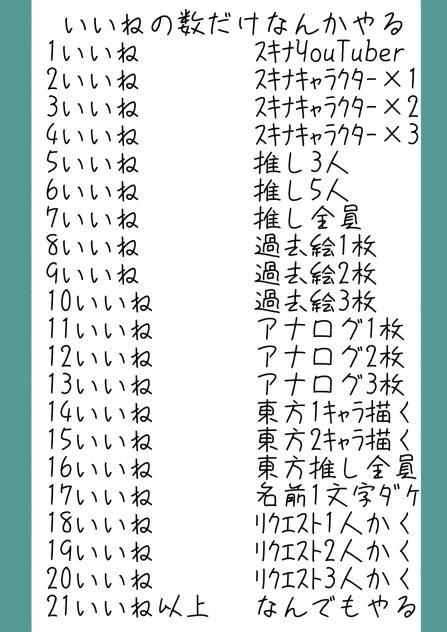 いいねの数だけなんかやる
1いいね ｽｷﾅYouTuber
2いいね ｽｷﾅｷｬﾗｸﾀｰ×1
3いいね ｽｷﾅｷｬﾗｸﾀｰ×2
4いいね ｽｷﾅｷｬﾗｸﾀｰ×3
5いいね 推し3人
6いいね 推し5人
7いいね 推し全員
8いいね 過去絵1枚
9いいね 過去絵2枚
10いいね 過去絵3枚
11いいね アナログ1枚
12いいね アナログ2枚
13いいね アナログ3枚
14いいね 東方1ｷｬﾗ描く
15いいね 東方2ｷｬﾗ描く
16いいね 東方推し全員
17いいね 名前1文字ﾀﾞｹ
18いいね ﾘｸｴｽﾄ1人かく
19いいね ﾘｸｴｽﾄ2人かく
20いいね ﾘｸｴｽﾄ3人かく
21いいね以上 なんでもやる